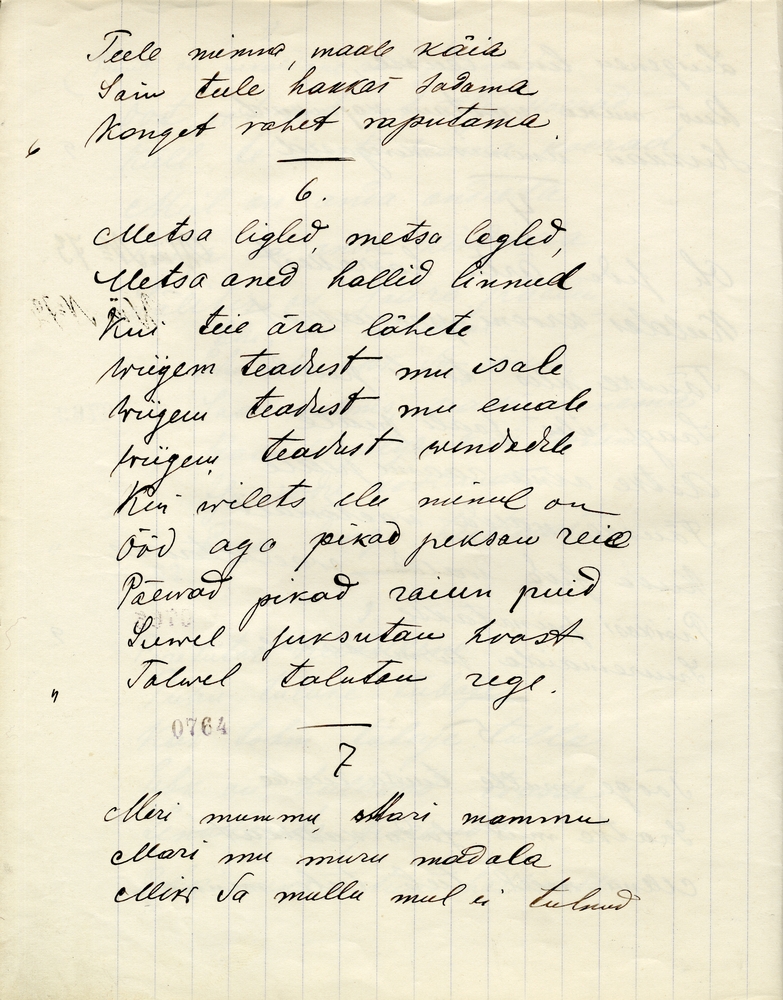 Teele minna, maale käia
Sain teele hakkas sadama
Konget rahet raputama.
6
6.
Metsa ligled, metsa legled,
Metsa aned hallid linnud
Kui teie ära lähete
Wiigem teadust mu isale
Wiigem teadust mu emale
Wiigem teadust wendadele
Kui wilets elu minul on
Ööd aga pikad peksan reie
Päewad pikad raiun puid
Suwel juksutan hoost
Talwel talutan rege.
"
0764
7
Meri mummu, Mari mammu
Mari mu muru madala
Miks Sa mullu mul ei tulnud